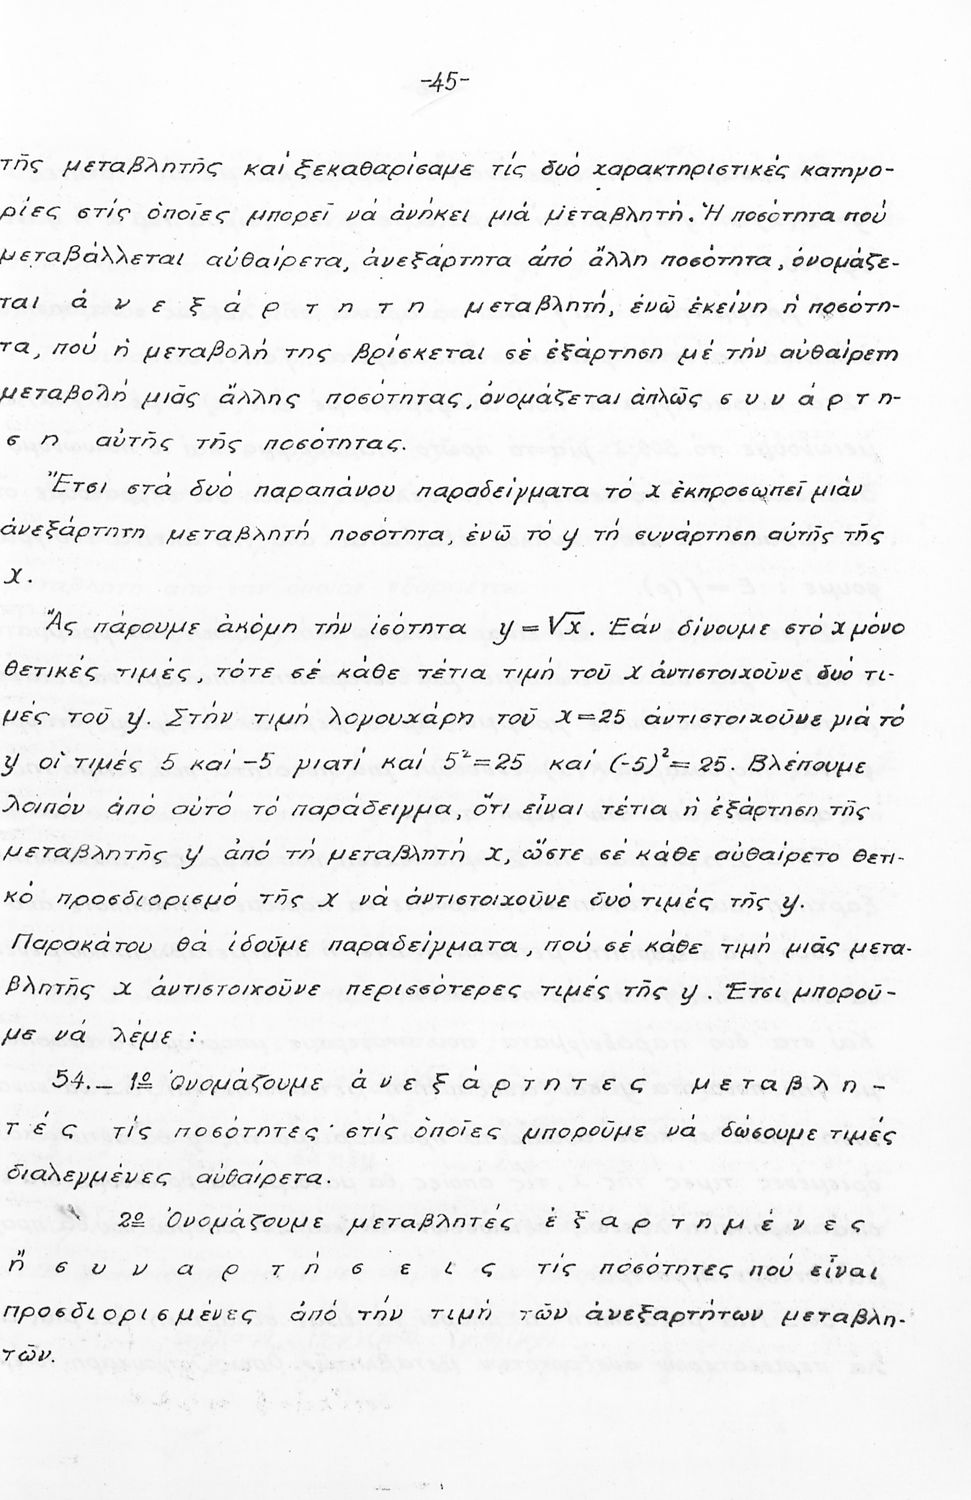 -45-
τῆς μεταβλητῆς καί ξεκαθαρίσαμε τίς δυό χαρακτηριστικές κατηγο-
ρίες στίς ὁποῖες μπορεῖ νά ἀνήκει μιά μεταβλητή. Ἡ ποσότητα πού
μεταβάλλεται αὐθαίρετα, ἀνεξάρτητα ἀπό ἄλλη ποσότητα, ὀνομάζε-
ται ἀ ν ε ξ ά ρ τ η τ η μεταβλητή, ἐνῶ ἐκείνη ἡ ποσότη-
τα, πού ἡ μεταβολή της βρίσκεται σέ ἐξάρτηση μέ τήν αὐθαίρετη
μεταβολή μιᾶς ἄλλης ποσότητας, ὀνομάζεται ἁπλῶς σ υ ν ά ρ τ η-
σ η αὐτῆς τῆς ποσότητας.
Ἔτσι στά δυό παραπάνου παραδείγματα τό x ἐκπροσωπεῖ μιάν
ἀνεξάρτητη μεταβλητή ποσότητα, ἐνῶ τό y τή συνάρτηση αὐτῆς τῆς
x.
Ἄς πάρουμε ἀκόμη τήν ἰσότητα y = √x. Ἐάν δίνουμε στό x μόνο
θετικές τιμές, τότε σέ κάθε τέτια τιμή τοῦ x ἀντιστοιχοῦνε δυό τι-
μές τοῦ y. Στήν τιμή λογουχάρη τοῦ x=25 ἀντιστοιχοῦνε γιά τό
y οἱ τιμές 5 καί -5 γιατί καί 5²=25 καί (-5)²=25. Βλέπουμε
λοιπόν ἀπό αὐτό τό παράδειγμα, ὅτι εἶναι τέτια ἡ ἐξάρτηση τῆς
μεταβλητῆς y ἀπό τή μεταβλητή x, ὥστε σέ κάθε αὐθαίρετο θετι-
κό προσδιορισμό τῆς x νά ἀντιστοιχοῦνε δυό τιμές τῆς y.
Παρακάτου θά ἰδοῦμε παραδείγματα, πού σέ κάθε τιμή μιᾶς μετα-
βλητῆς x ἀντιστοιχοῦνε περισσότερες τιμές τῆς y. Ἔτσι μποροῦ-
με νά λέμε :
54.– 1º Ὀνομάζουμε ἀ ν ε ξ ά ρ τ η τ ε ς μ ε τ α β λ η -
τ έ ς τίς ποσότητες στίς ὁποῖες μποροῦμε νά δώσουμε τιμές
διαλεγμένες αὐθαίρετα.
2º Ὀνομάζουμε μεταβλητές ἐ ξ α ρ τ η μ έ ν ε ς
ἤ σ υ ν α ρ τ ή σ ε ι ς τίς ποσότητες πού εἶναι
προσδιορισμένες ἀπό τήν τιμή τῶν ἀνεξαρτήτων μεταβλη-
τῶν.